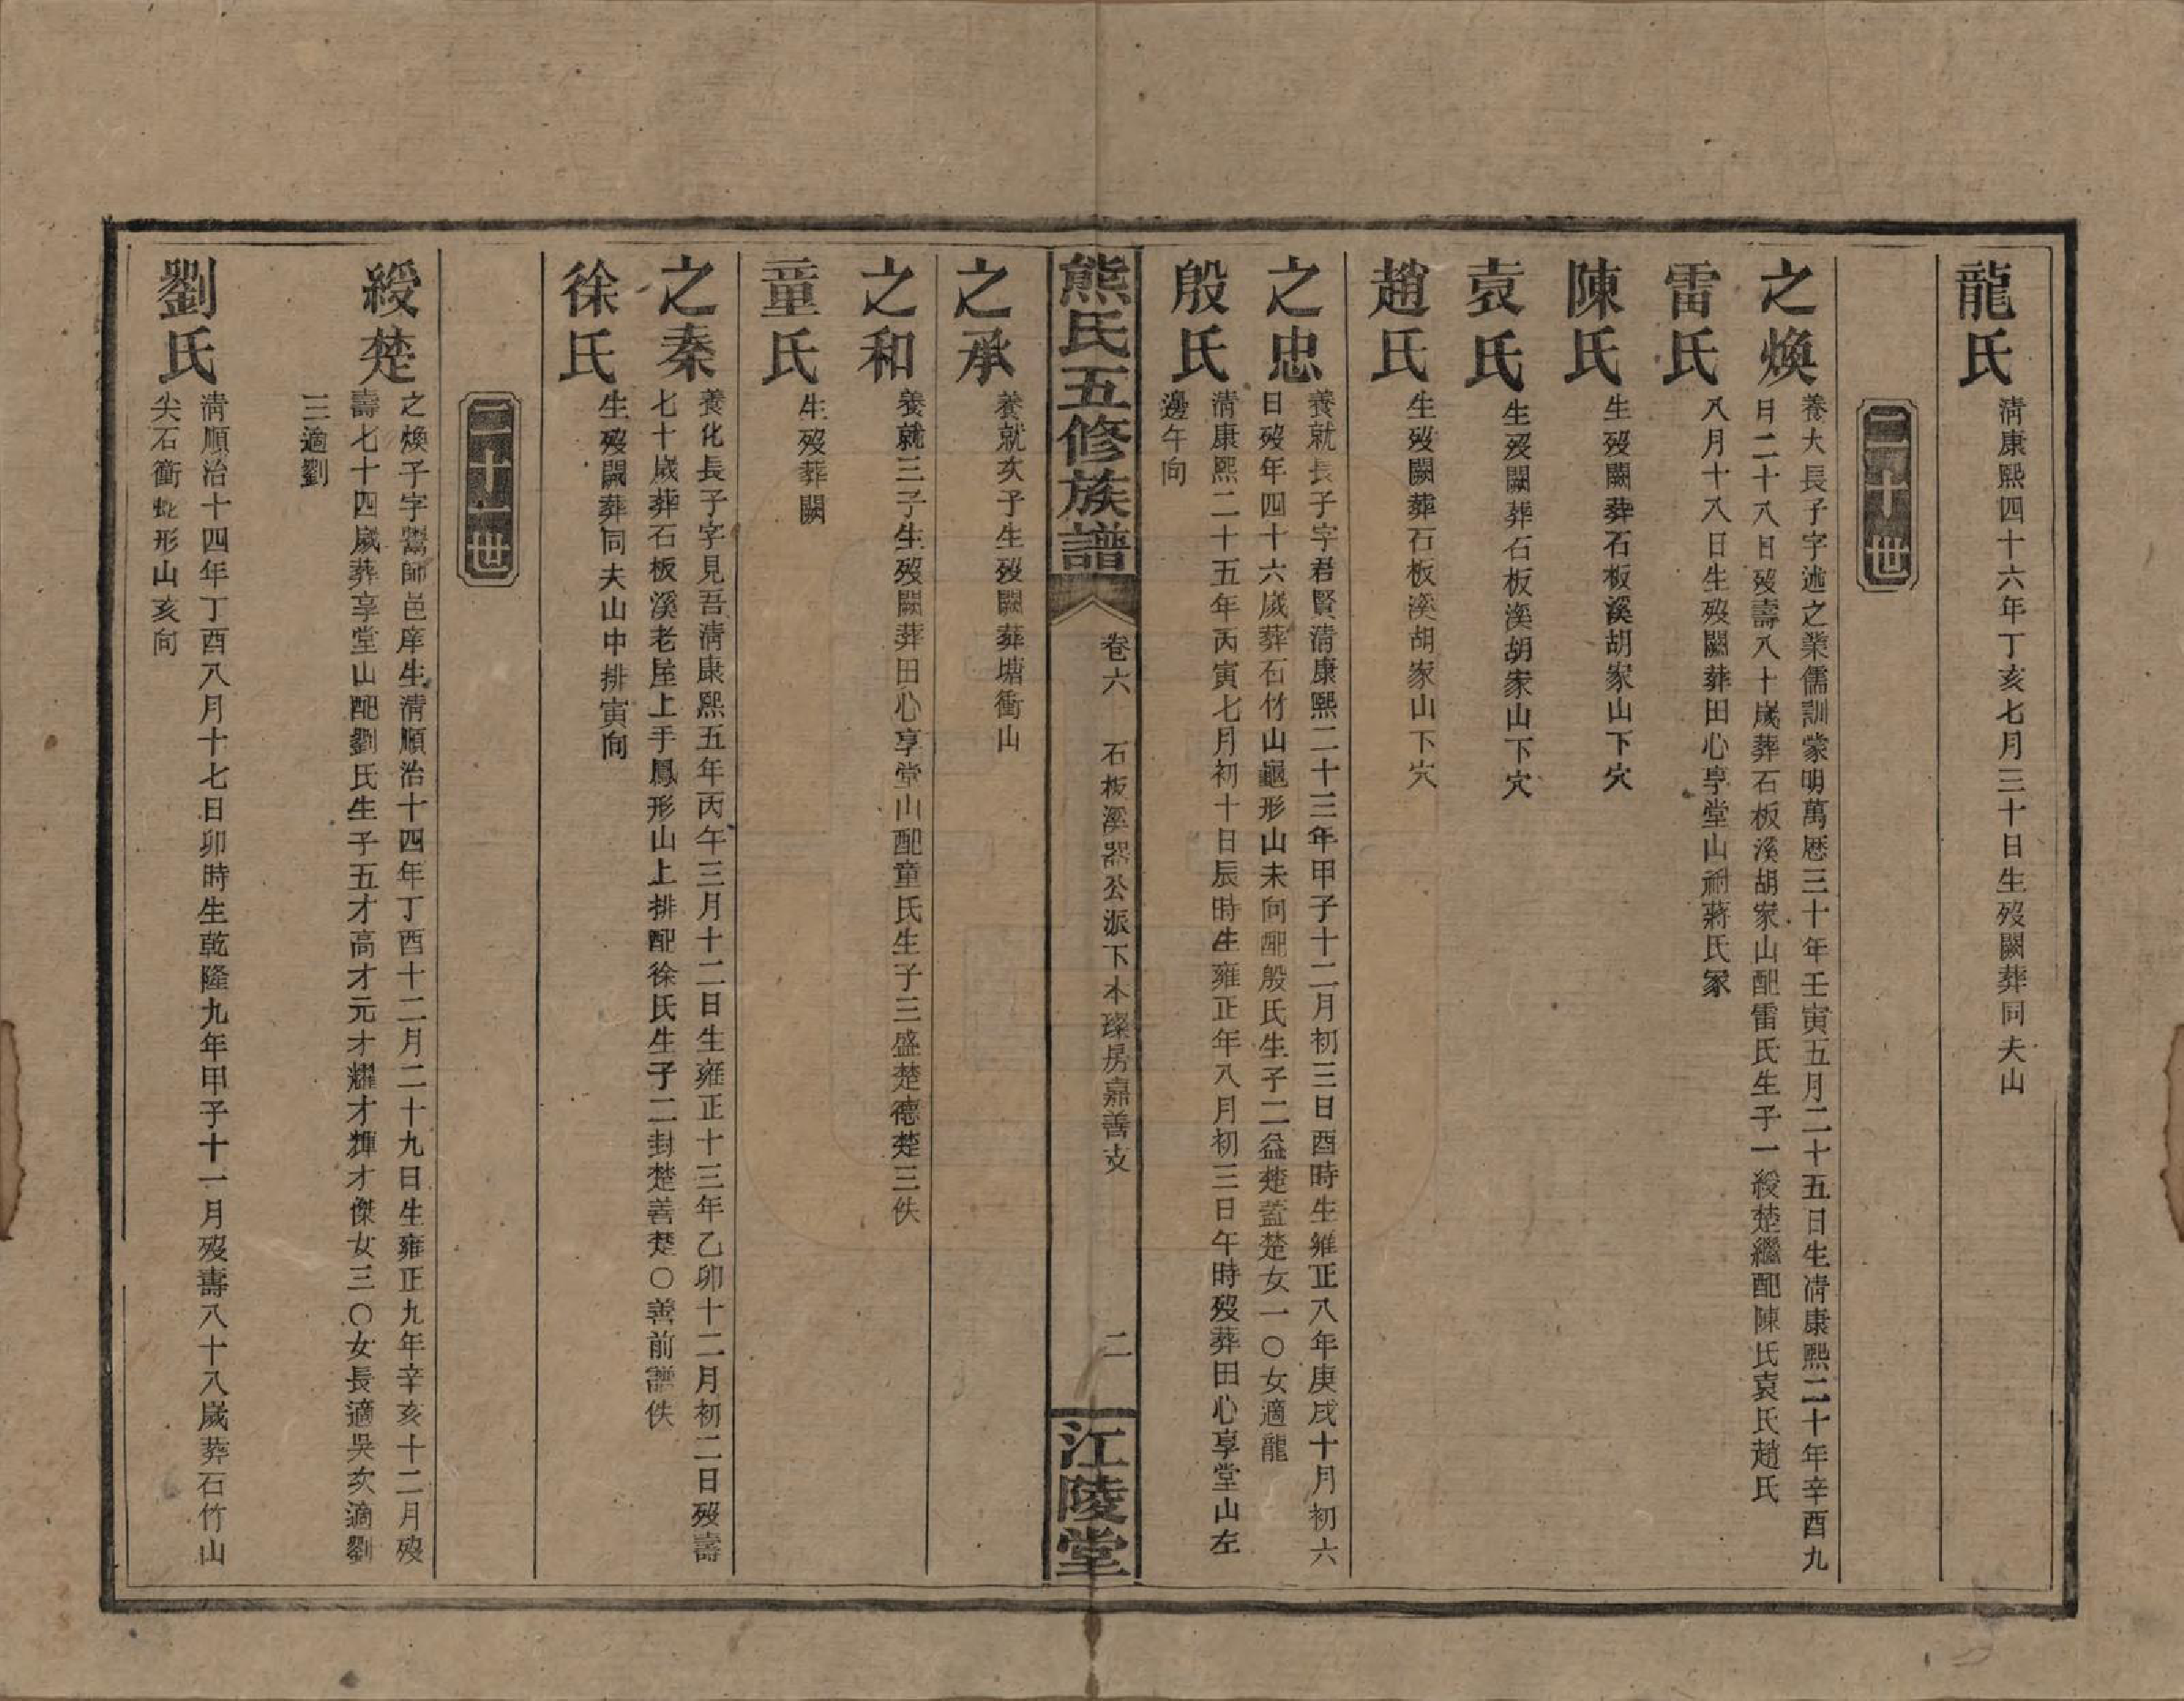 龍氏
淸康熙四十六年丁亥七月三十日生歿闕葬同夫山
二十世
之煥
養大長子字述之業儒訓蒙明萬厯三十年壬寅五月二十五日生淸康熙二十年辛酉九
月二十八日歿壽八十歲葬石板溪胡家山配雷氏生子一綬楚繼配陳氏袁氏趙氏
雷氏
八月十八日生歿闕葬田心享堂山祔蔣氏冢
陳氏
生歿闕葬石板溪胡家山下穴
袁氏
生歿闕葬石板溪胡家山下穴
趙氏
生歿闕葬石板溪胡家山下穴
之忠
養就長子字君賢淸康熙二十三年甲子十二月初三日酉時生雍正八年庚戌十月初六
日歿年四十六歲葬石竹山龜形山未向配殷氏生子二益楚蓋楚女一〇女適龍
殷氏
淸康熙二十五年丙寅七月初十日辰時生雍正年八月初三日午時歿葬田心享堂山左
邊午向
熊氏五修族譜
卷六 石板溪器公派下本璨房嘉善支
二
江陵堂
之承
養就次子生歿闕葬塘衝山
之和
養就三子生歿闕葬田心享堂山配童氏生子三盛楚德楚三佚
童氏
生歿葬闕
之秦
養化長子字見吾淸康熙五年丙午三月十二日生雍正十三年乙卯十二月初二日歿壽
七十歲葬石板溪老屋上手鳳形山上排配徐氏生子二封楚善楚〇善前譜佚
徐氏
生歿闕葬同夫山中排寅向
二十一世
綬楚
之煥子字鷟師邑庠生淸順治十四年丁酉十二月二十九日生雍正九年辛亥十二月歿
壽七十四歲葬享堂山配劉氏生子五才高才元才耀才輝才傑女三〇女長適吳次適劉
三適劉
劉氏
淸順治十四年丁酉八月十七日卯時生乾隆九年甲子十一月歿壽八十八歲葬石竹山
尖石衝蛇形山亥向